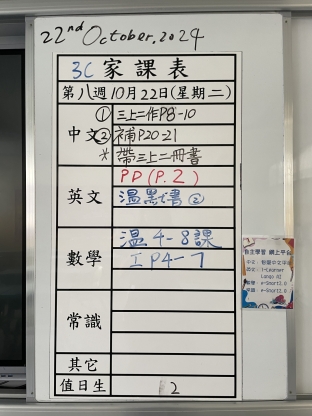 22nd October, 2024
3C 家課表
第八週10月22日(星期二)
中文
① 三上二作P8-10
② 補P20-21
* 帶三上二冊書
英文
PD (P.2)
溫默書②
數學
溫4-8課
工P4-7
常識
其它
值日生 2
自主學習 網上平台